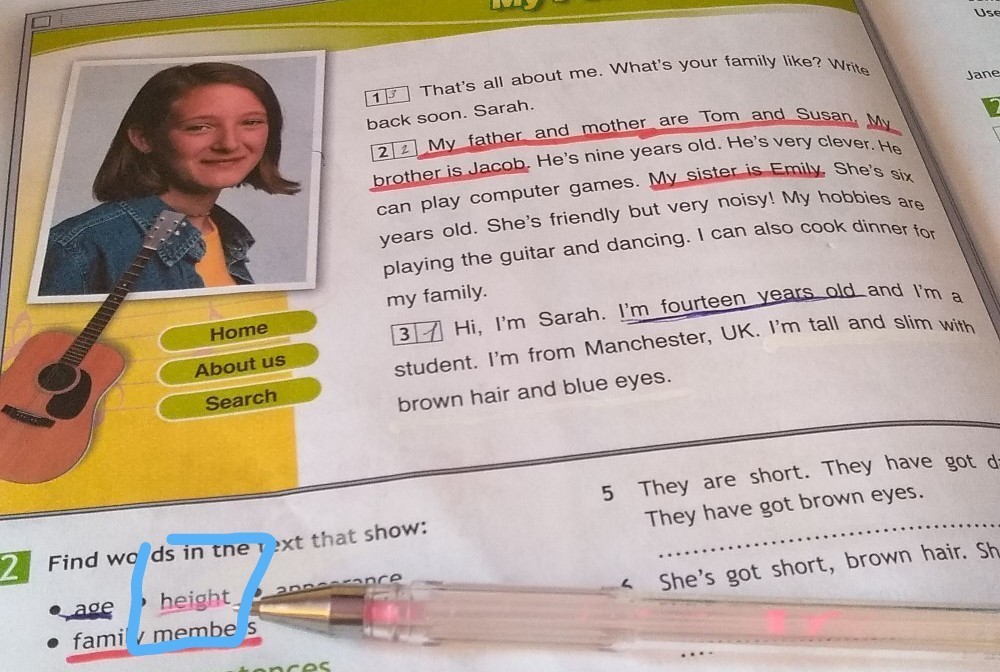 My
Use
1 3 That's all about me. What's your family like? Write
back soon. Sarah.
2 2 My father and mother are Tom and Susan. My
brother is Jacob. He's nine years old. He's very clever. He
can play computer games. My sister is Emily. She's six
years old. She's friendly but very noisy! My hobbies are
playing the guitar and dancing. I can also cook dinner for
my family.
3 1 Hi, I'm Sarah. I'm fourteen years old and I'm a
student. I'm from Manchester, UK. I'm tall and slim with
brown hair and blue eyes.
Jane
Home
About us
Search
2 Find words in the text that show:
• age • height • appearance
• family members
5 They are short. They have got
They have got brown eyes.
She's got short, brown hair.